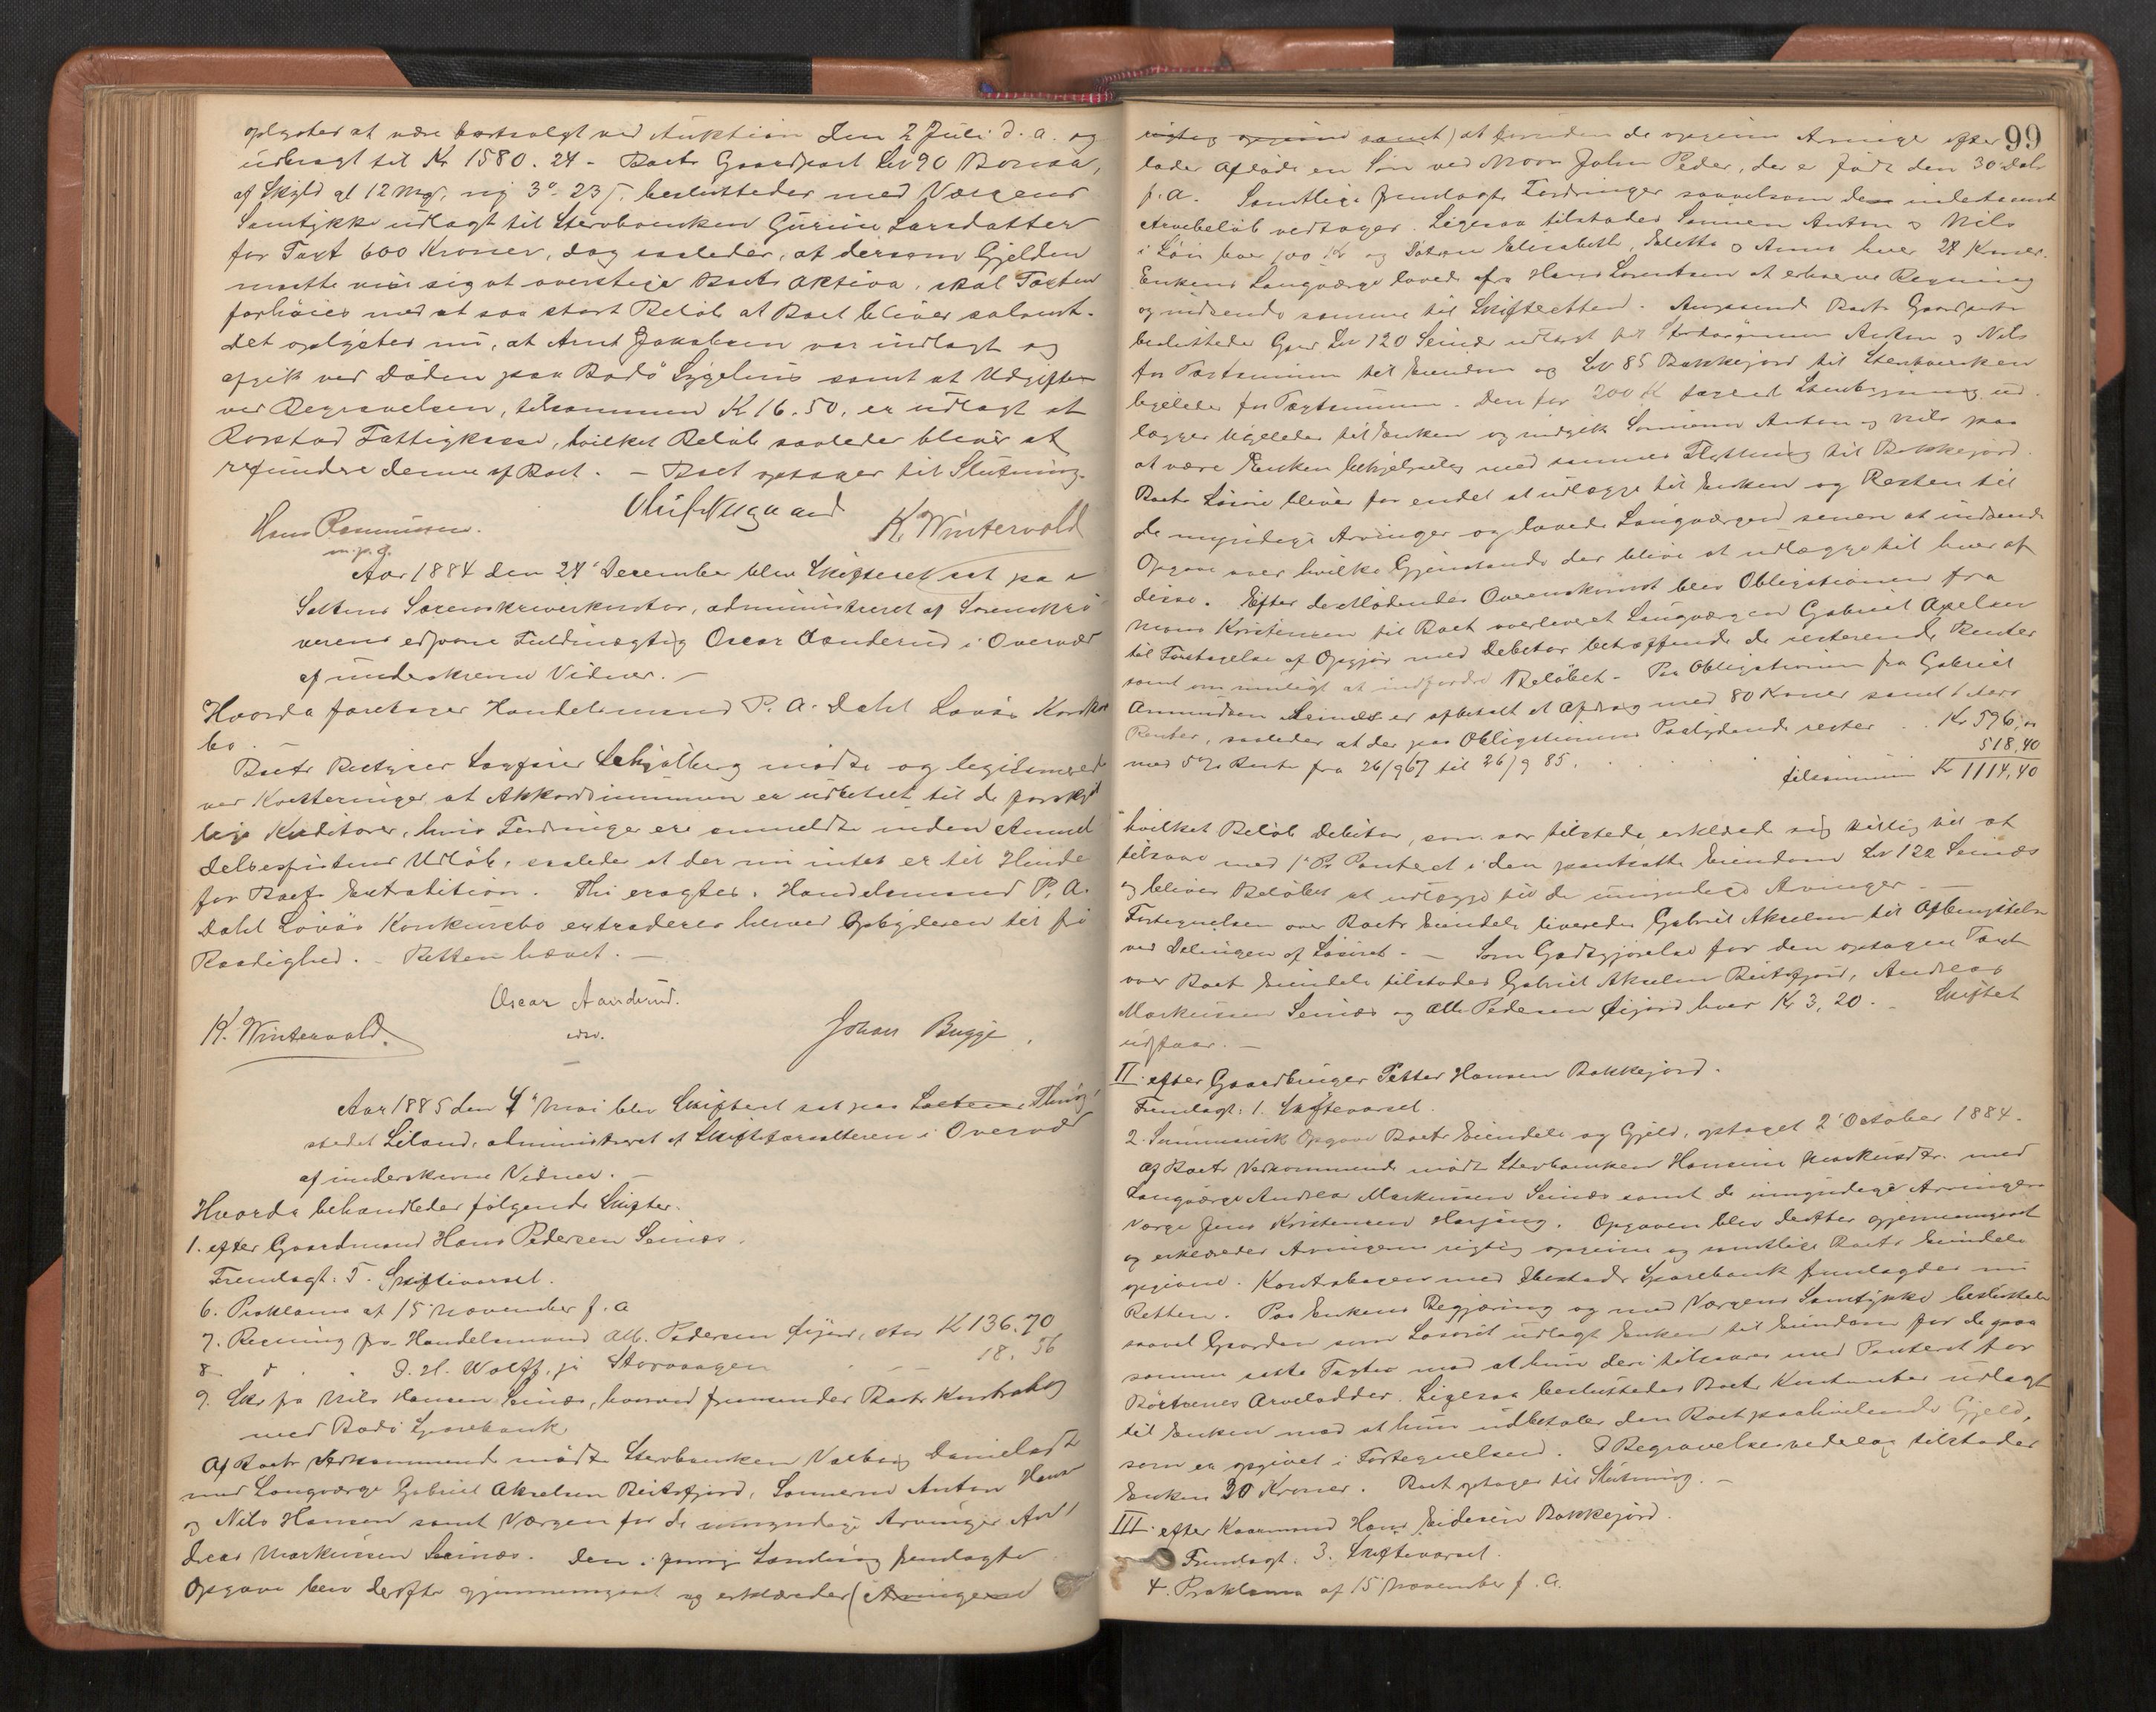 oplystes at være bortsolgt ved Auktion den 2 Juli d. a. og
udbragt til Kr 1580.24 - Boets Gaardpart Lnr 90
af Skyld 12 mg, ny 3 23 besluttedes med Værgens
Samtykke udlagt til Stervboenken Gurine Larsdatter
for Taxt 600 Kroner, dog saaledes, at dersom Gjelden
maatte vise sig at overstige Boets Aktiva, skal Taxten
forhøies med et saa stort Beløb at Boet bliver solvent.
Det oplystes nu, at Arnt Jakobsen var indlagt og
afgik ved Døden paa Bodø Sygehus samt at Udgifter
ved Begravelsen, tilsammen K 16.50, er udlagt af
Fattigkasse, hvilket Beløb saaledes bliver at
refundere denne af Boet. - Boet optages til Slutning.
Hans Rasmussen. K. Wintervold
m. p. p.
Aar 1884 den 24' December blev Skifteret sat paa
Saltens Sorenskriverkontor, administreret af Sorenskri-
verens edsvorne Fuldmægtig Oscar Aanderud i Overvær
af underskrevne Vidner. -
Hvorda foretages Handelsmand P. A. Dahl Løvøs Konkurs
bo. -
Boets Bestyrer Sagfører mødte og legitimerede
ved Kvitteringer at Akkordsummen er udbetalt til de forskjel
lige Kreditorer, hvis Fordringer ere anmeldte inden Anmel
delsesfristens Udløb, saaledes at der nu intet er til Hinder
for Boets Extradition. Thi eragtes: Handelsmand P. A.
Dahl Løvøs Konkursbo extraderes herved Opbyderen til fri
Raadighed. - Retten hævet. -
Oscar Aanderud.
edsv.
K. Wintervold. Johan Bugge.
Aar 1885 den 4' Mai blev Skifteret sat paa Thing-
stedet Liland, administreret af Skifteforvalteren i Overvær
af underskrevne Vidner. -
Hvorda behandledes følgende Skifter.
1. efter Gaardmand Hans Pedersen Seines.
Fremlagt: 5. Skiftevarsel.
6. Proklama af 15 November f. a
7. Regning fra Handelsmand Alb. Pedersen, stor K 136.70
8. " . J. H. Wolff, jr Storvaagen . - - 18.56
9. Skr fra Nils Hansen Seines, hvorved fremsendes Boets Kontrabog
med Bodø Sparebank
Af Boets Vedkommende mødte Stervboenken Valborg Danielsdtr
med Laugværge Gabriel Akselsen Beitsfjord, Sønnerne Anton Hans
og Nils Hansen samt Værgen for de umyndige Arvinger An-
dreas Markussen Seines. Den i forrige Samling fremlagte
Opgave blev derefter gjennemgaaet og erklæredes (Arvingerne
99
rigtig opgivne samt) at foruden de opgivne Arvinge efter
lader Afdøde en Søn ved Navn John Peder, der er født den 30 Dcbr
f. a. Samtlige fremlagte Fordringer saavelsom det indestaaende
Arvebeløb vedtages. Ligesaa tilstodes Sønnen Anton og Nils
i Løn hver 100 Kr og Døtrene Elisabeth, Eletta og Anna hver 24 Kroner.
Enkens Laugværge lovede fra Hans Lorentsen at erhverve Regning
og indsende samme til Skifteretten. Angaaende Boets Gaardparter
besluttedes Gaard Lnr 120 Seines udlagt til Anton og Nils
for Taxtsummen til Eiendom og Lnr 85 Bakkejord til Stervboenken
ligeledes for Taxtsummen. Den for 200 K ud
lægges ligeledes til Enken og indgik Sønnerne Anton og Nils paa
at være Enken behjelpelig med sammes Flytning til Bakkejord.
Boets Løsøre bliver for endel at udlægge til Enken og Resten til
de myndige Arvinger og lovede Laugværgen senere at indsende
Opgave over hvilke Gjenstande der blive at udlægge til hver af
disse. Efter de Mødendes Overenskomst blev Obligationen fra
Mons Kristensen til Boet overleveret Laugværgen Gabriel Axelsen
til Foretagelse af Opgjør med Debitor betræffende de resterende Renter
samt om muligt at indfordre Beløbet. - Paa Obligationen fra Gabriel
Amundsen Seines er afbetalt et Afdrag med 80 Kroner samt Aars
Renter, saaledes at der paa Obligationens Paalydende rester . . Kr 596,00
med 5% Rente fra 26/9 67 til 26/9 85. . . . . . 518,40
tilsammen Kr 1114,40
hvilket Beløb Debitor, som var tilstede, erklærede sig villig til at
tilsvare med 1' Pr Panteret i den pantsatte Eiendom Lnr 122 Seines
og bliver Beløbet at udlægge til de umyndige Arvinger. -
Fortegnelsen over Boets Eiendele leveredes Gabriel Akselsen til Afbenyttelse
ved Delingen af Løsøret. - Som Godtgjørelse for den optagne Taxt
over Boets Eiendele tilstodes Gabriel Akselsen Beitsfjord, Andreas
Markussen Seines og Alb. Pedersen hver Kr 3,20. - Skiftet
udstaar. -
II. efter Gaardbruger Petter Hansen Bakkejord.
Fremlagt: 1. Skiftevarsel.
2. Summarisk Opgave Boets Eiendele og Gjeld, optaget 2' October 1884.
Af Boets Vedkommende mødte Stervboenken Hansine Markusdtr. med
Laugværge Andreas Markussen Seines samt de umyndige Arvingers
Værge Jens Kristensen. Opgaven blev derefter gjennemgaaet
og erklæredes Arvingerne rigtig opgivne og samtlige Boets Eiendele
opgivne. Kontrabogen med Ibestad Sparebank fremlagdes nu
Retten. Paa Enkens Begjæring og med Værgens Samtykke besluttedes
saavel Gaarden som Løsøret udlagt Enken til Eiendom for de paa
samme satte Taxter mod at hun deri tilsvarer med Panteret for
Børnenes Arvelodder. Ligesaa besluttedes Boets Kontanter udlagt
til Enken mod at hun udbetaler den Boet paahvilende Gjeld,
som er opgivet i Fortegnelsen. I Begravelsesvederlag tilstodes
Enken 30 Kroner. Boet optages til Slutning. -
III. efter Kaarmand Hans Bakkejord.
Fremlagt: 3. Skiftevarsel.
4. Proklama af 15 November f. a.